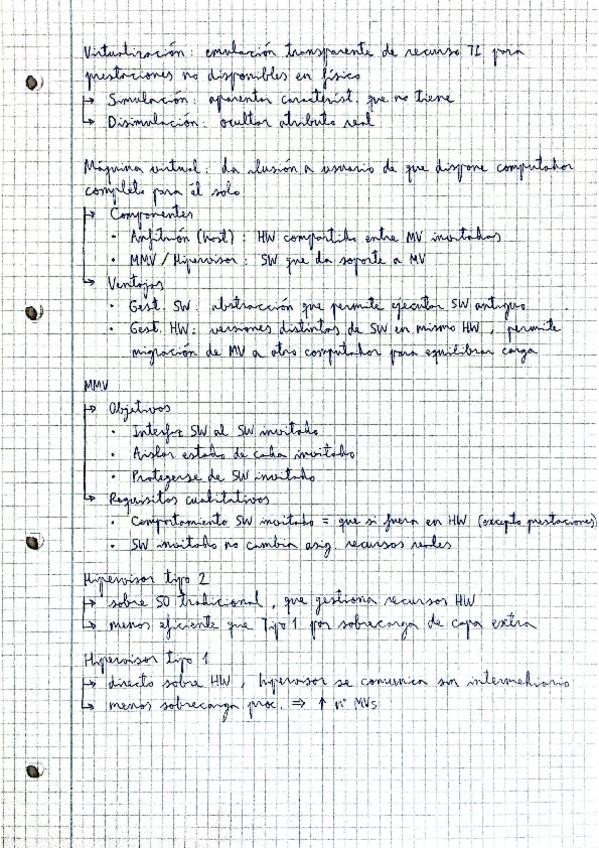 Virtualización: emulación transparente de recurso TI para
prestaciones no disponibles en físico
↳ Simulación: aparentar característ. que no tiene
↳ Disimulación: ocultar atributo real
Máquina virtual: da ilusión a usuario de que dispone computador
completo para él solo
↳ Componentes
· Anfitrión (host): HW compartido entre MV invitadas
· MMV / Hipervisor: SW que da soporte a MV
↳ Ventajas
· Gest. SW: abstracción que permite ejecutar SW antiguo
· Gest. HW: versiones distintas de SW en mismo HW, permite
migración de MV a otro computador para equilibrar carga
MMV
↳ Objetivos
· Interfaz SW al SW invitado
· Aislar estado de cada invitado
· Protegerse de SW invitado
↳ Requisitos cualitativos
· Comportamiento SW invitado = que si fuera en HW (excepto prestaciones)
· SW invitado no cambia asig. recursos reales
Hipervisor tipo 2
↳ sobre SO tradicional, que gestiona recursos HW
↳ menos eficiente que Tipo 1 por sobrecarga de capa extra
Hipervisor tipo 1
↳ directo sobre HW, hipervisor se comunica sin intermediario
↳ menos sobrecarga proc. ⇒ ↑ nº MVs